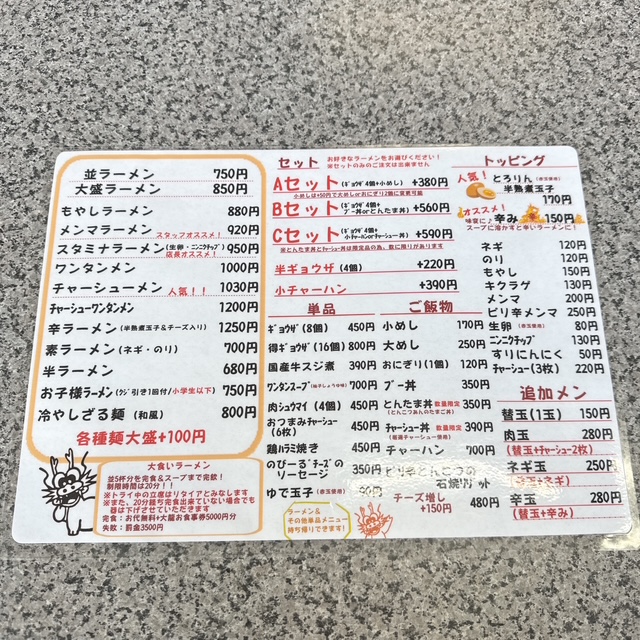 並ラーメン 750円
大盛ラーメン 850円
もやしラーメン 880円
メンマラーメン 920円
スタッフオススメ!
スタミナラーメン(生卵・ニンニクチップ) 950円
店長オススメ!
ワンタンメン 1000円
チャーシューメン 人気!! 1030円
チャーシューワンタンメン 1200円
辛ラーメン(半熟煮玉子&チーズ入り) 1250円
素ラーメン(ネギ・のり) 700円
半ラーメン 680円
お子様ラーメン(クジ引き1回付/小学生以下) 750円
冷やしざる麺(和風) 800円
各種麺大盛+100円
大食いラーメン
並5杯分を完食&スープまで完飲!
制限時間は20分!!
※トライ中の立席はリタイアとみなします
※また、20分経ち完食出来ていない場合でも
器は下げさせていただきます
完食:お代無料+大龍お食事券5000円分
失敗:罰金3500円
セット
お好きなラーメンをお選びください!
※セットのみのご注文は出来ません
Aセット(ギョウザ4個+小めし) +380円
※小めしは+50円で大めしorおにぎり2個に変更可能
Bセット(ギョウザ4個+ブー丼orとんたま丼) +560円
Cセット(ギョウザ4個+小チャーハンorチャーシュー丼) +590円
※とんたま丼とチャーシュー丼は限定品の為、数に限りがあります
半ギョウザ(4個) +220円
小チャーハン +390円
単品
ギョウザ(8個) 450円
得ギョウザ(16個) 800円
国産牛スジ煮 390円
ワンタンスープ 350円
肉シュウマイ(4個) 450円
おつまみチャーシュー(6枚) 450円
鶏ハラミ焼き 450円
のび~る"チーズ"の
リーセージ 350円
ゆで玉子(赤玉使用) 90円
ラーメン&
その他単品メニュー
持ち帰りできます!
ご飯物
小めし 170円
大めし 250円
おにぎり(1個) 120円
ブー丼 350円
とんたま丼 数量限定 350円
(とんこつあんのたまご丼)
チャーシュー丼 数量限定 390円
(厳選チャーシュー使用)
チャーハン 700円
ピリ辛とんこつの
石焼リゾット
480円
チーズ増し
+150円
トッピング
人気! とろりん(赤玉使用)
半熟煮玉子
170円
オススメ!
味変に! 辛み 150円
スープに溶かすと辛いラーメンに!
ネギ 120円
のり 120円
もやし 150円
キクラゲ 130円
メンマ 200円
ピリ辛メンマ 250円
生卵(赤玉使用) 80円
ニンニクチップ 130円
すりにんにく 50円
チャーシュー(3枚) 220円
追加メン
替玉(1玉) 150円
肉玉 280円
(替玉+チャーシュー2枚)
ネギ玉 250円
(替玉+ネギ)
辛玉 280円
(替玉+辛み)